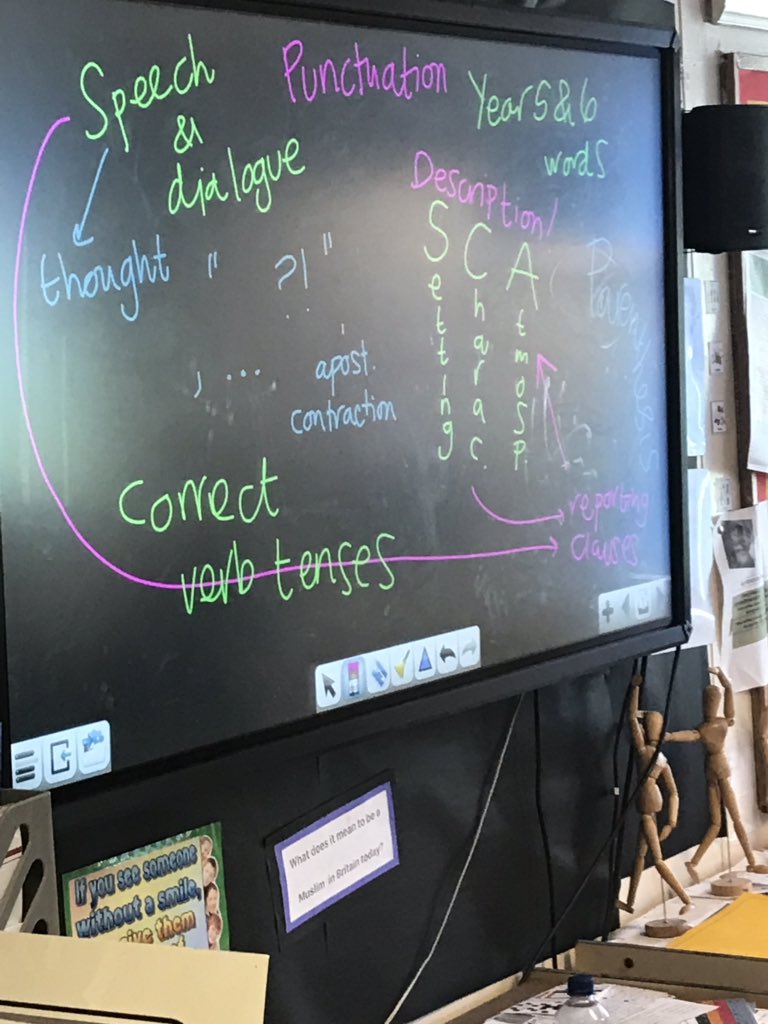 Speech
&
dialogue
Punctuation
Years 5&6
words
thought " ?! "
, ...
'
apost.
contraction
Description/
Setting
Charac.
Atmosp.
Parenthesis
reporting
clauses
Correct
verb tenses
What does it mean to be a
Muslim in Britain today?
If you see someone
without a smile,
give them